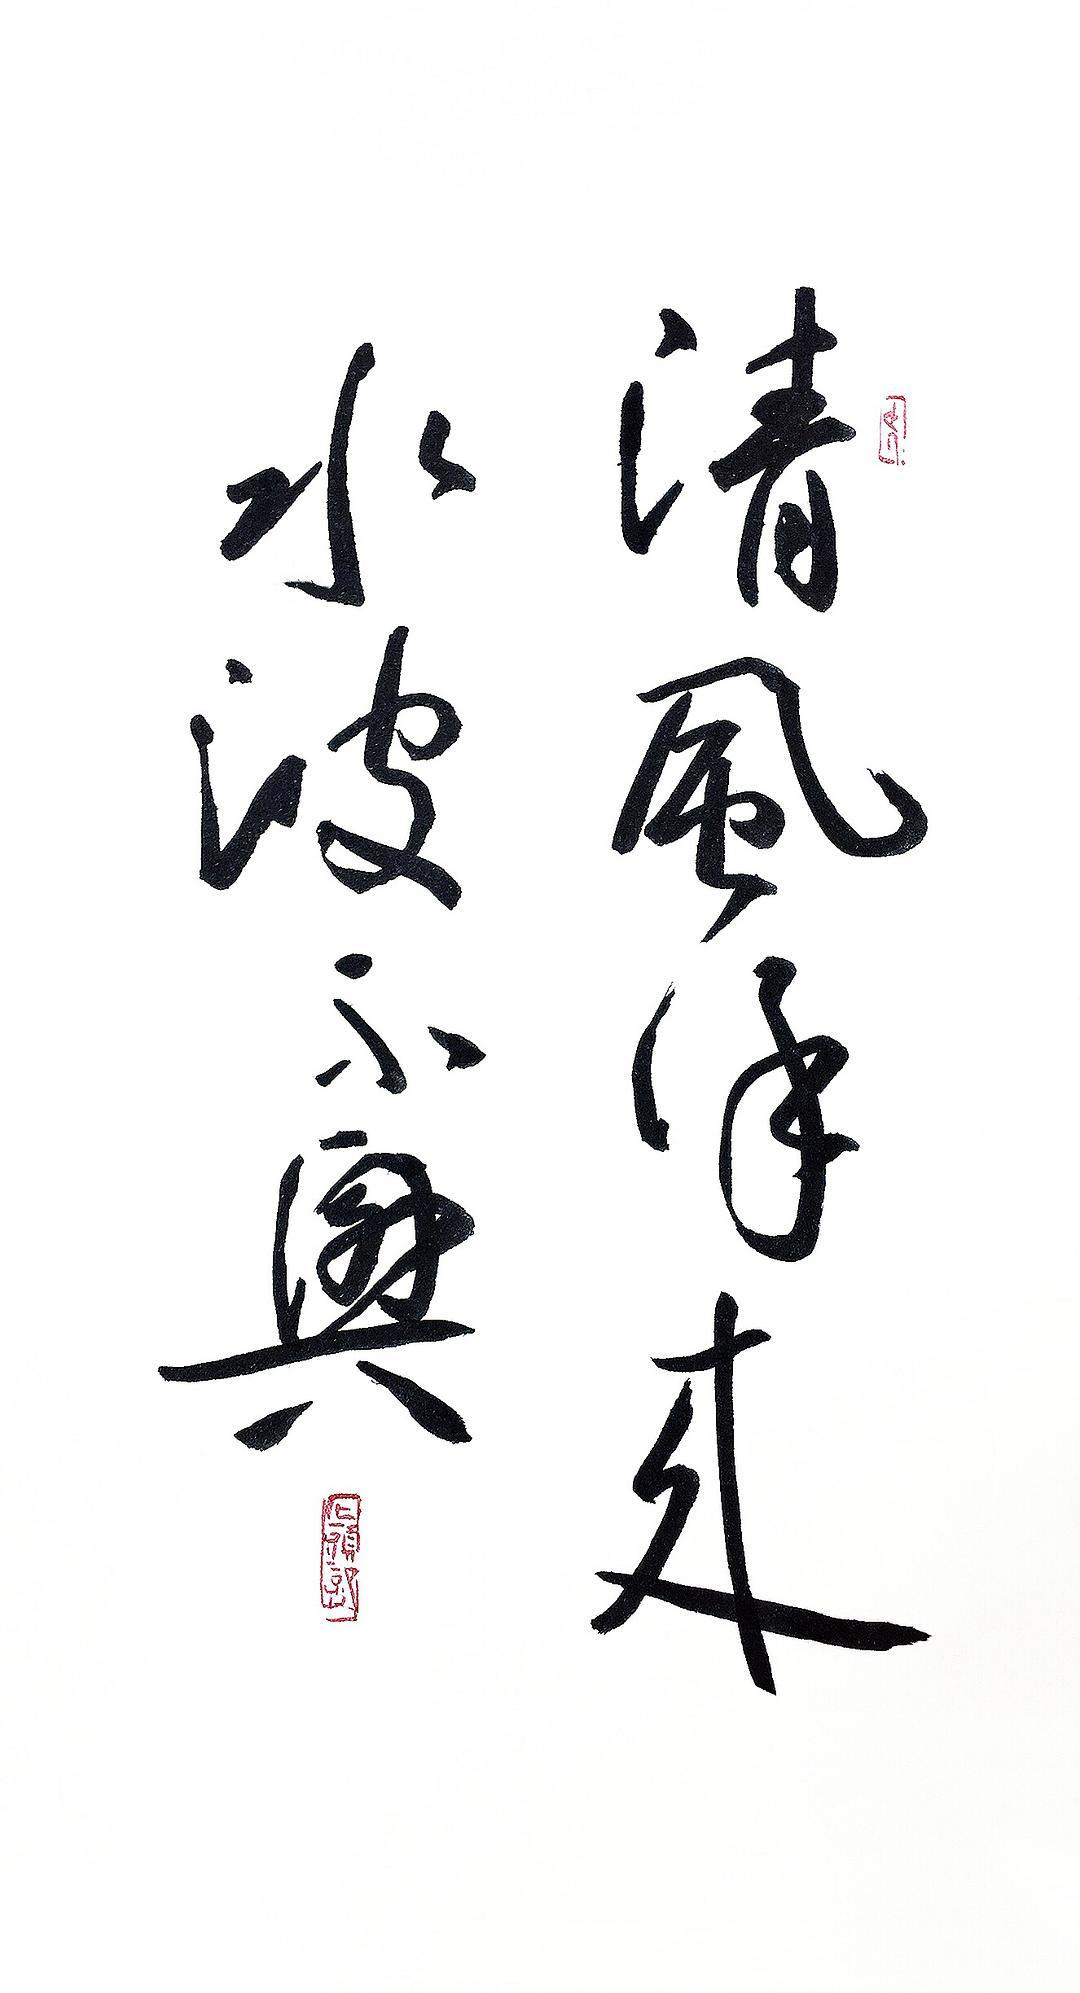 清風徐来
水波不興